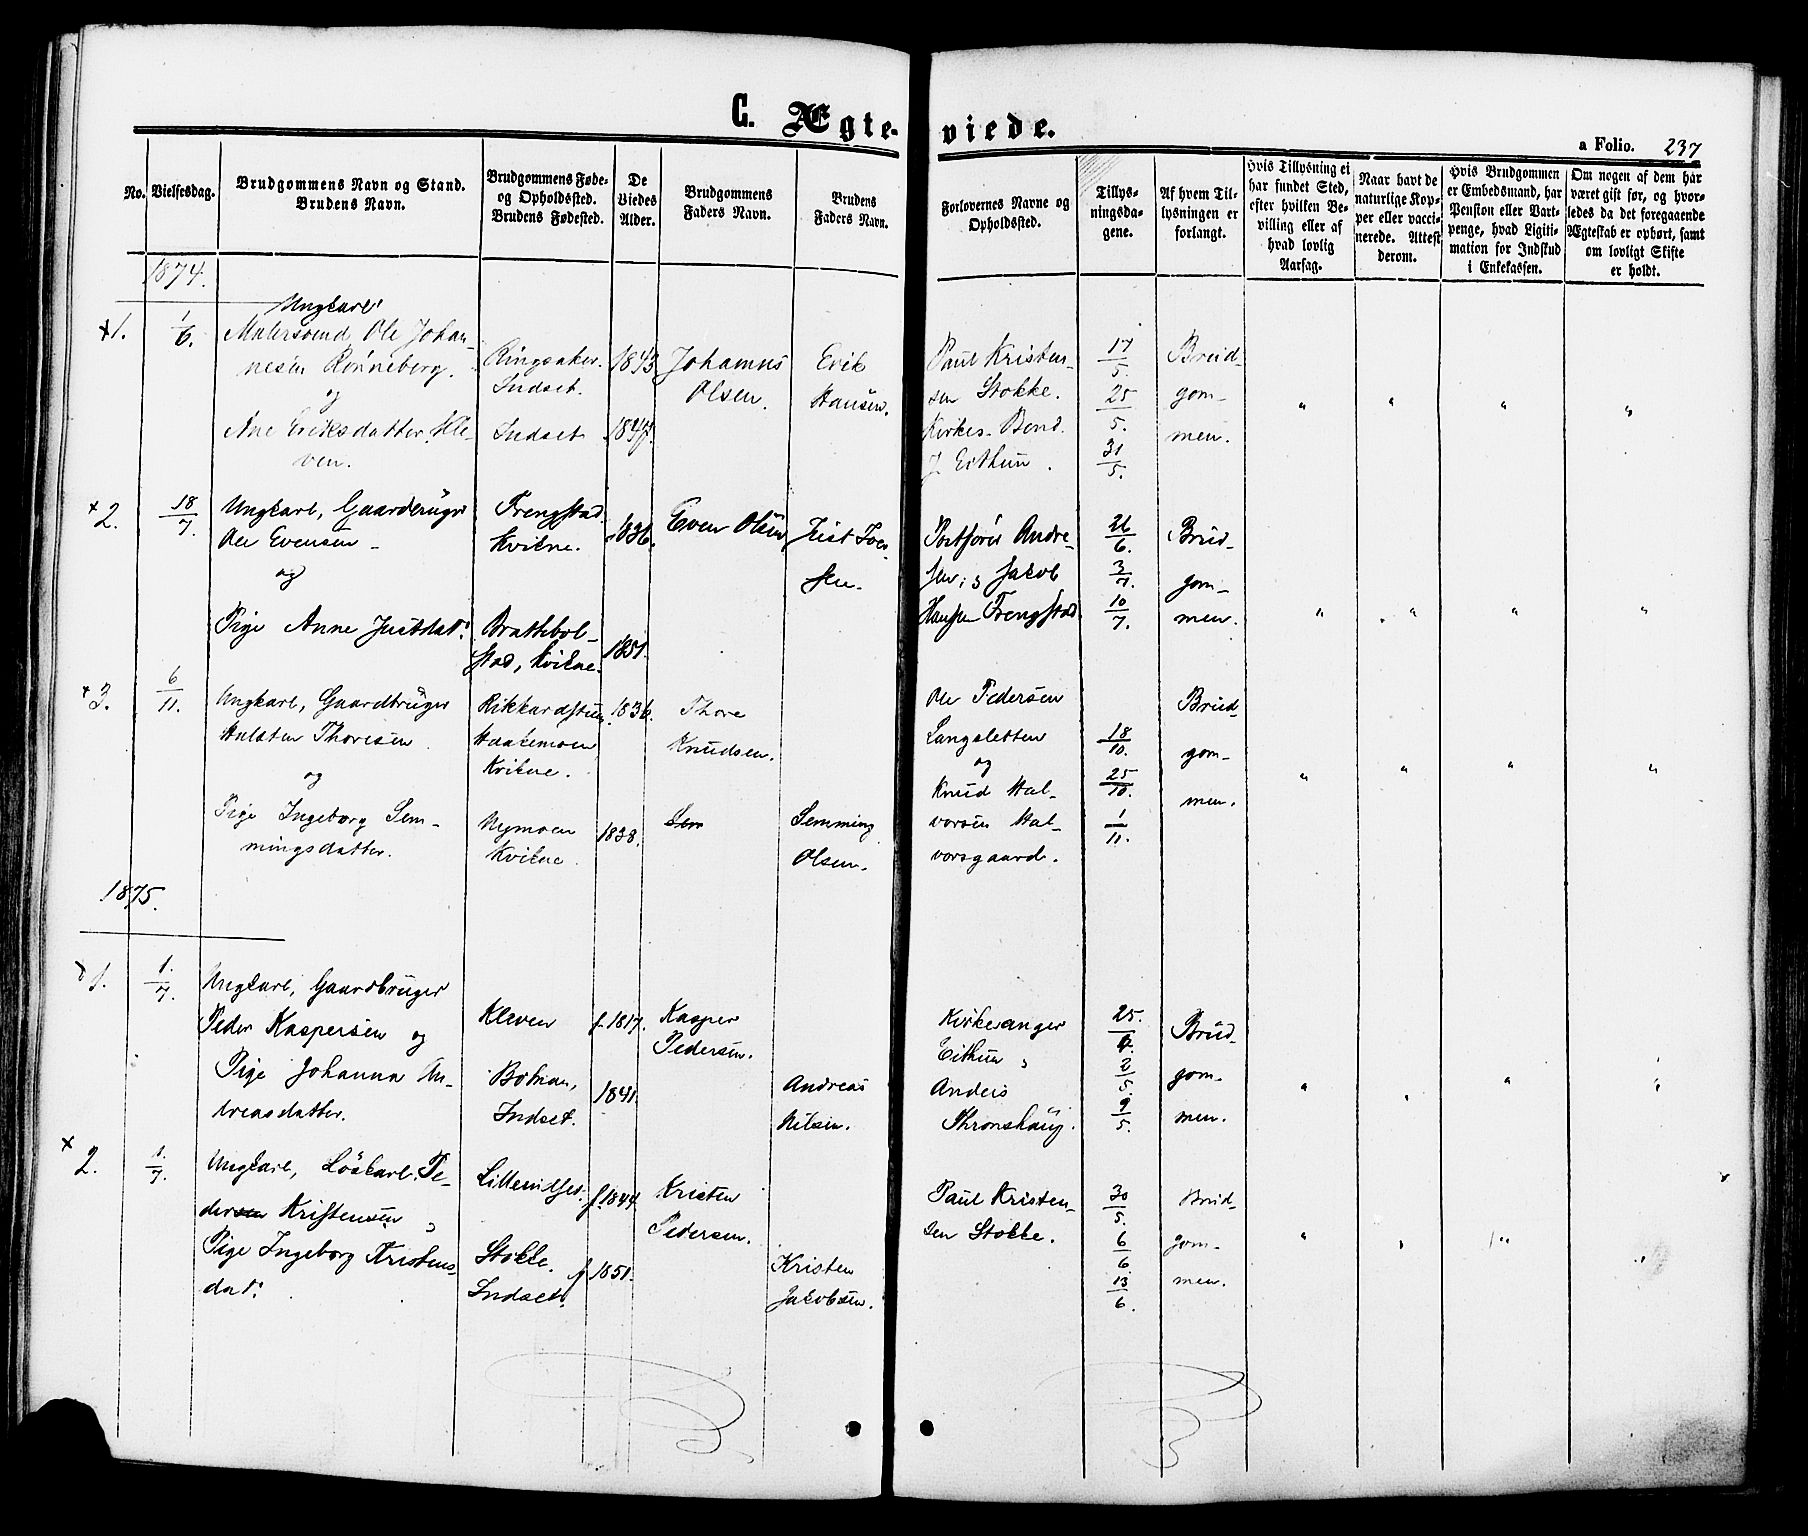 C. Ægte-viede.
a Folio. 237
No.
Vielsesdag.
Brudgommens Navn og Stand.
Brudens Navn.
Brudgommens Føde-
og Opholdssted.
Brudens Fødested.
De
Viedes
Alder.
Brudgommens
Faders Navn.
Brudens
Faders Navn.
Forlovernes Navne og
Opholdssted.
Tillys-
ningsda-
gene.
Af hvem Til-
lysningen er
forlangt.
Hvis Tillysning ei
har fundet Sted,
efter hvilken Be-
villing eller af
hvad lovlig
Aarsag.
Naar havt de
naturlige Kop-
per eller vacci-
nerede. Attest
derom.
Hvis Brudgommen
er Embedsmand, har
Pension eller Vart-
penge, hvad Ligiti-
mation for Indskud
i Enkekassen.
Om nogen af dem har
været gift før, og hvor-
ledes da det foregaaende
Ægteskab er ophørt, samt
om lovligt Skifte
er holdt.
1874.
1.
1/6.
Ungkarl
Malersvend Ole Johan-
nesen Rønneberg.
og
Ane Eriksdatter Kle-
ven.
Ringsaker.
Indset.
Indset
1843
1847.
Johannes
Olsen.
Erik
Hansen.
Paul Kristen-
sen Stokke.
Kirkes.
J. Eithun.
17/5.
25/5.
31/5.
Brud-
gom-
men.
" " " "
2.
18/7.
Ungkarl, Gaardbruger
Ole Evensen
og
Pige Anne Justdat.
Frengstad
Kvikne.
Brattebol-
stad, Kvikne.
1836.
1851.
Even Olsen
Just
sen.
Andre-
sen, & Jakob
Hansen Frengstad
26/6.
3/7.
10/7.
Brud-
gom-
men.
" " " "
3.
6/11.
Ungkarl, Gaardbruger
Halsten Thoresen
og
Pige Ingeborg Sem-
mingsdatter.
Rikkardstuen
Haakemoen
Kvikne.
Nymoen
Kvikne.
1836.
1838.
Thore
Knudsen.
Sem
Semming
Olsen.
Ole Pedersen
Langsletten
og
Knud Hal-
vorsen Hal-
vorsgaard.
18/10.
25/10.
1/11.
Brud-
gom-
men.
" " " "
1875.
1.
1./7.
Ungkarl, Gaardbruger
Peder Kaspersen og
Pige Johanna An-
dreasdatter.
Kleven
Indset.
f. 1817.
1841.
Kasper
Pedersen.
Andreas
Nilsen.
Kirkesanger
Eithun &
Anders
Thronshaug.
25./4.
2/5.
9/5.
Brud-
gom-
men.
2.
1./7.
Ungkarl, Løskarl. Pe-
dersen Kristensen &
Pige Ingeborg Kristens-
dat.
Stokke.
Indset.
f. 1844.
f 1851.
Kristen
Pedersen.
Kristen
Jakobsen.
Paul Kristen-
sen Stokke.
30/5.
6/6
13/6.
Brud-
gom-
men.